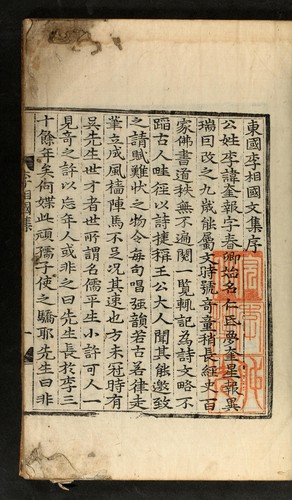 東國李相國文集序
公姓李諱奎報字春卿始名仁氐夢奎星報異
瑞因改之九歲能屬文時號奇童稍長經史百
家佛書道秩無不遍閱一覽輒記爲詩文略不
蹈古人畦徑以詩捷稱王公大人聞其能邀致
之請賦難狀之物令每句唱強韻若古若律走
筆立成風檣陣馬不乏況其速也方未冠時有
吳先生世才者世所謂名儒平生小許可人一
見奇之許以忘年人或非之曰先生長於李三
十餘年矣何媒此頑孺子使之驕耶先生曰非
李相國集